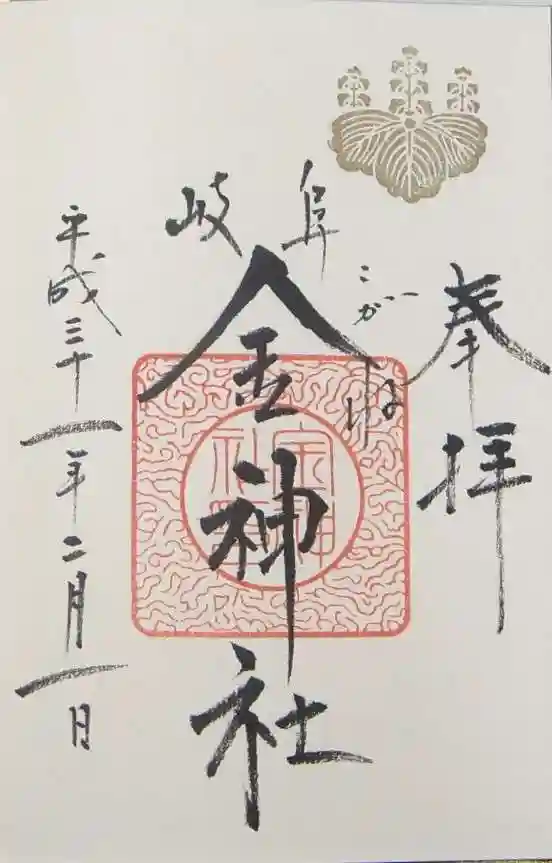 奉拝
こがね
岐阜
金神社
平成三十一年二月一日